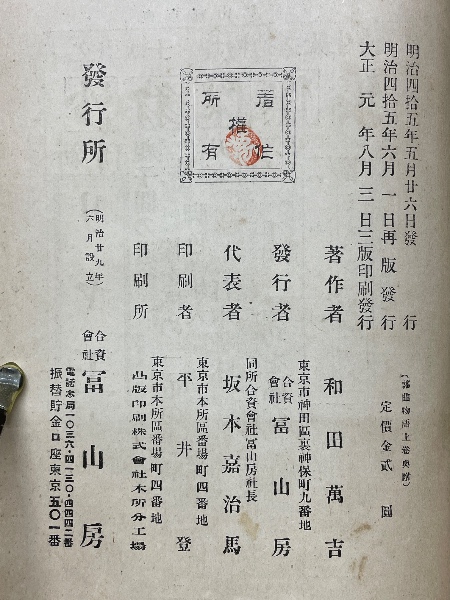 明治四拾五年五月廿六日發行
明治四拾五年六月一日再版發行
大正元年八月三日三版印刷發行
定價金貳圓
著作權所有
著作者 和田萬吉
東京市神田區裏神保町九番地
發行者 合資會社 冨山房
同所合資會社冨山房社長
代表者 坂本嘉治馬
東京市本所區番場町四番地
印刷者 平井登
東京市本所區番場町四番地
印刷所 凸版印刷株式會社本所分工場
發行所 (明治廿九年六月設立) 合資會社 冨山房
電話本局一〇三六・四一三〇・四四四二番
振替貯金口座東京五〇一番